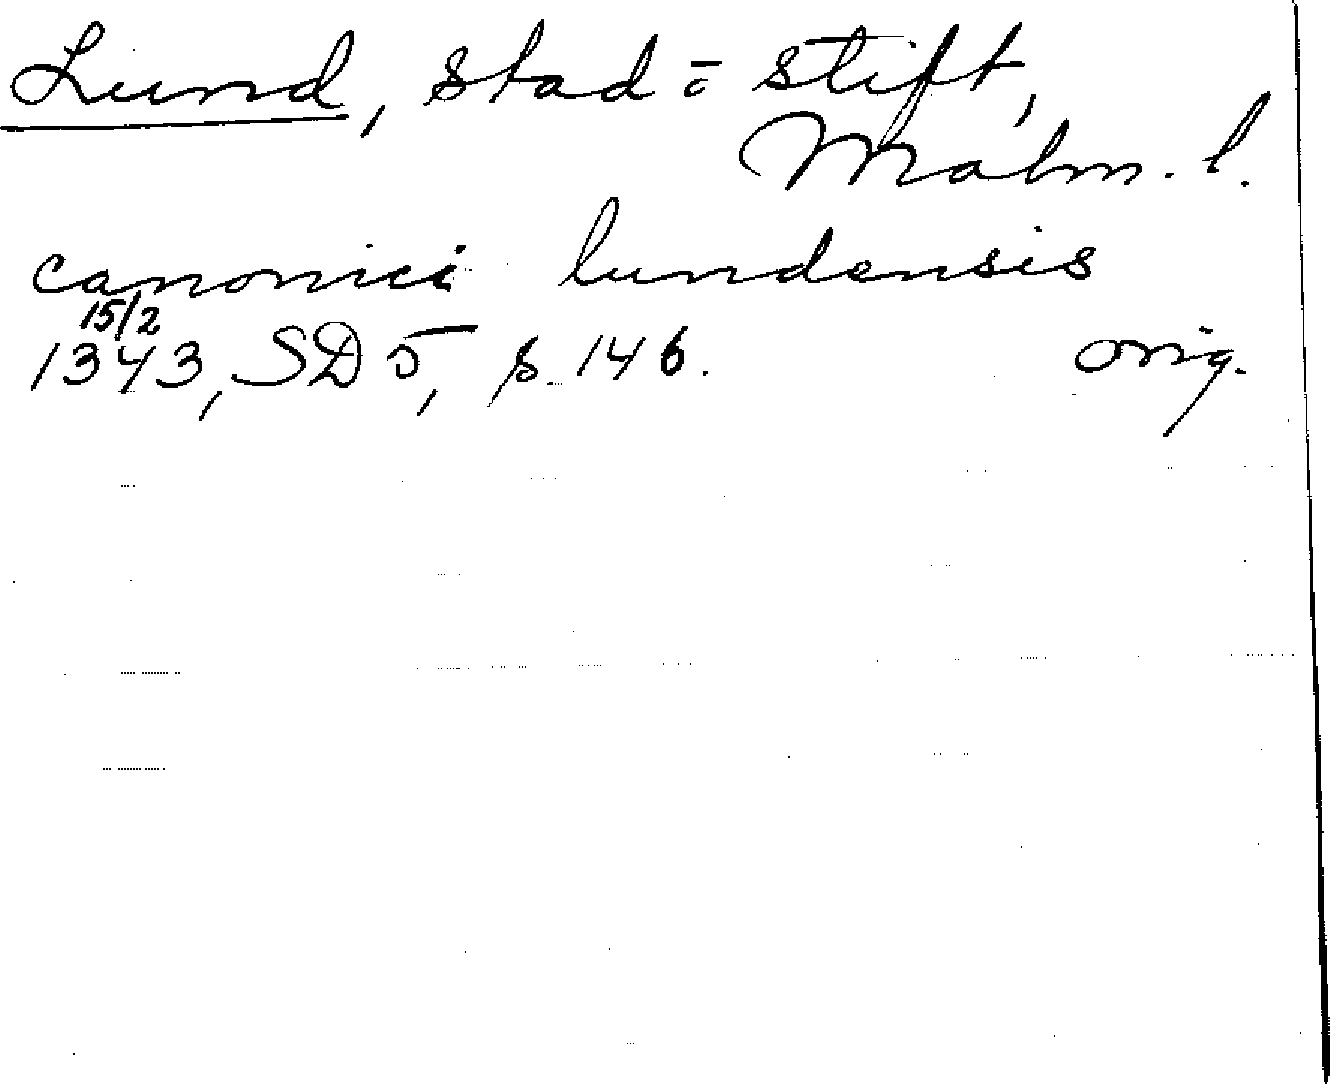 Lund, stad o stift,
Malm. l.
canonici lundensis
15/2
1343, SD 5, s. 146. orig.